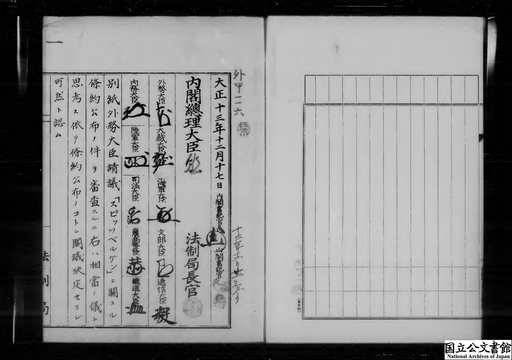 外甲一一六
大正十三年十二月十七日
内閣書記官長
内閣書記官
内閣總理大臣
法制局長官
外務大臣
大藏大臣
海軍大臣
文部大臣
遞信大臣
内務大臣
陸軍大臣
司法大臣
農商務大臣
鐵道大臣
別紙外務大臣請議「スピッツベルゲン」ニ關スル
條約公布ノ件ヲ審査スルニ右ハ相當ノ儀ト
思考ス依テ條約公布ノコトニ閣議決定セラレ
可然ト認ム
法制局
国立公文書館
National Archives of Japan